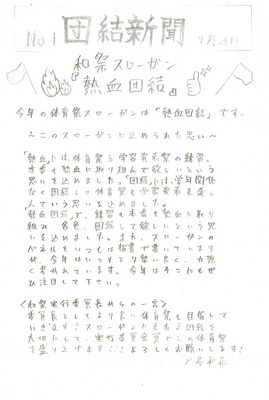 No 1 団結新聞 9月25日
和祭スローガン
『熱血団結』
今年の体育祭スローガンは「熱血団結」です。
〜このスローガンに込められた思い〜
「熱血」には、体育祭と学習発表祭の練習、
本番も熱血に取り組んで欲しいという
思いを込めました。「団結」には、学年関係
なく団結して体育祭と学習発表を楽し
んでという思いを込めました。
「熱血団結」で、練習も本番も熱血に取り
組み、各色、団結して欲しいという思
いを込めました。また、スローガンの
パネルもいつもは板書で書いています
が、今年はいつもより勢い良く、力強
く書かれています。今年はそこにもぜ
ひ注目して下さい。
〈和祭実行委員長からの一言〉
委員長としてより良い体育祭を目指して
いきます!スローガンにもある団結を
大切にして、実行委員会でこの体育祭
を盛り上げます!!よろしくお願いします!